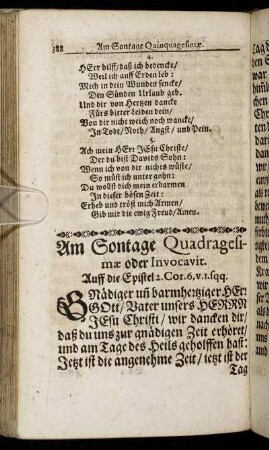 188 Am Sontage Quinquagesimæ.
4.
HErr hilff/ daß ich bedencke/
Weil ich auff Erden leb:
Mich in dein Wunden sencke/
Den Sünden Urlaub geb.
Und dir von Hertzen dancke
Fürs bitter leiden dein/
Von dir nicht weich noch wancke/
In Todt/ Noth/ Angst/ und Pein.
5.
Ach mein HErr JEsu Christe/
Der du bist Davids Sohn:
Wenn ich von dir nichts wüste/
So müst ich unter gohn:
Du wollst dich mein erbarmen
In dieser bösen Zeit:
Erheb und tröst mich Armen/
Gib mir die ewig Freud/ Amen.
Am Sontage Quadragesi-
mæ oder Invocavit.
Auff die Epistel 2. Cor. 6, v. 1. sqq.
GNädiger uñ barmhertziger HErr
GOtt/ Vater unsers HERRN
JEsu Christi/ wir dancken dir/
daß du uns zur gnädigen Zeit erhöret/
und am Tage des Heils geholffen hast:
Jetzt ist die angenehme Zeit/ jetzt ist der
Tag